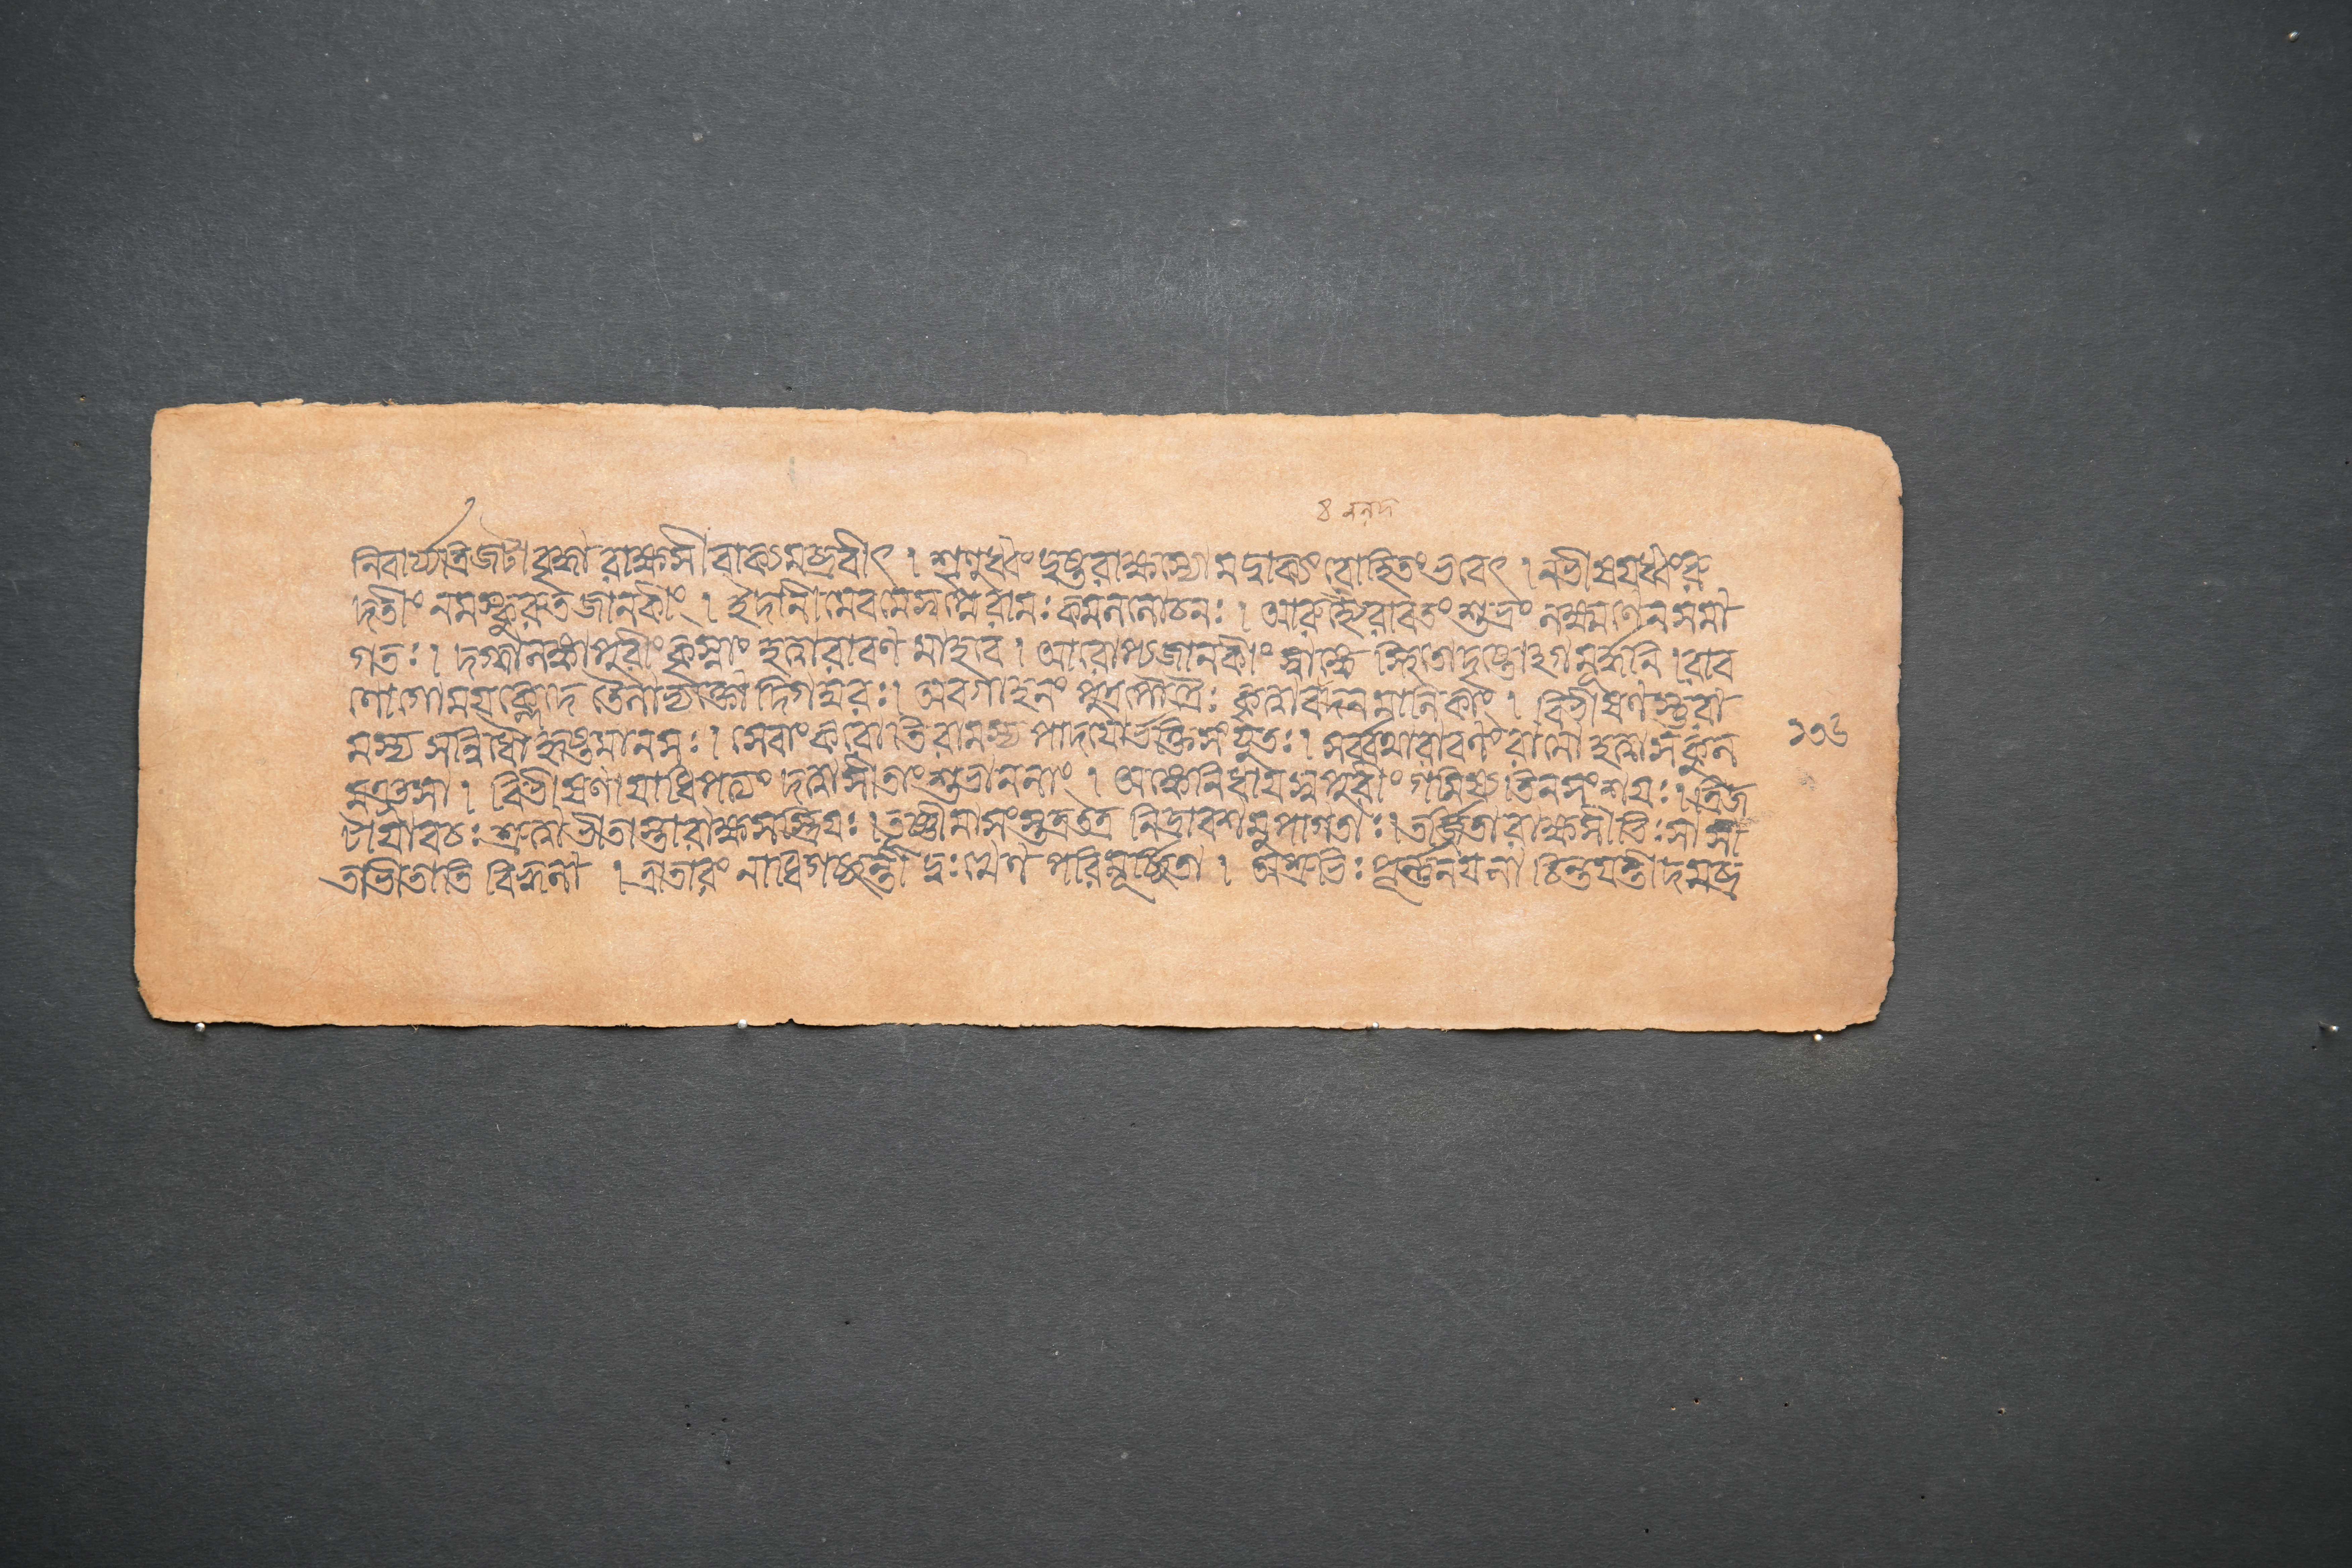 নিবার্য্যত্রিজটা বৃদ্ধা রাক্ষসী বাক্যমব্রবীৎ । শৃণুধ্বং দুষ্টরাক্ষস্যো মদ্বাক্যং বো হিতং ভবেৎ । নভীষয়ধ্বং রু
দতীং নমস্কুরুত জানকীং । ইদানীমেবমেস্বপ্নে রামঃ কমললোচনঃ । আরুহ্যৈরাবতং শুভ্রং লক্ষ্মণেন সমা
গতঃ । দগ্ধালঙ্কাপুরীং কৃৎস্নাং হত্বারাবণমাহবে । আরোপ্যজানকীং স্বাঙ্কে স্থিতোদৃষ্টোঽগমূর্দ্ধনি । রাব
ণোগোময়হ্রদে তৈলাভ্যক্তো দিগম্বরঃ । অবগাহনং পুত্রপৌত্রৈঃ কৃত্বাবদনমালিকাং । বিভীষণস্তু রা
মস্য সন্নিধৌ হৃষ্টমানসঃ । সেবাং করোতি রামস্য পাদয়োর্ভক্তিসংযুতঃ । সর্ব্বথারাবণং রামো হত্বাসকুল
মঞ্জসা । বিভীষণায়াধিপত্যং দত্বাসীতাং শুভাননাং । অঙ্কেনিধায়স্বপুরীং গমিষ্যতিনসংশয়ঃ । ত্রিজ
টায়াবচঃ শ্রুত্বাভীতাস্তারাক্ষসস্ত্রিয়ঃ । তূষ্ণীমাসংস্তত্রতত্র নিদ্রাবশমুপাগতাঃ । তর্জ্জিতারাক্ষসীভিঃ সা সী
তাভীতাতিবিহ্বলা । ত্রাতারং নাধিগচ্ছন্তী দুঃখেন পরিমূর্চ্ছিতা । অশ্রুভিঃ পূর্ণ্ণনয়না চিন্তয়ন্তীদমব্র